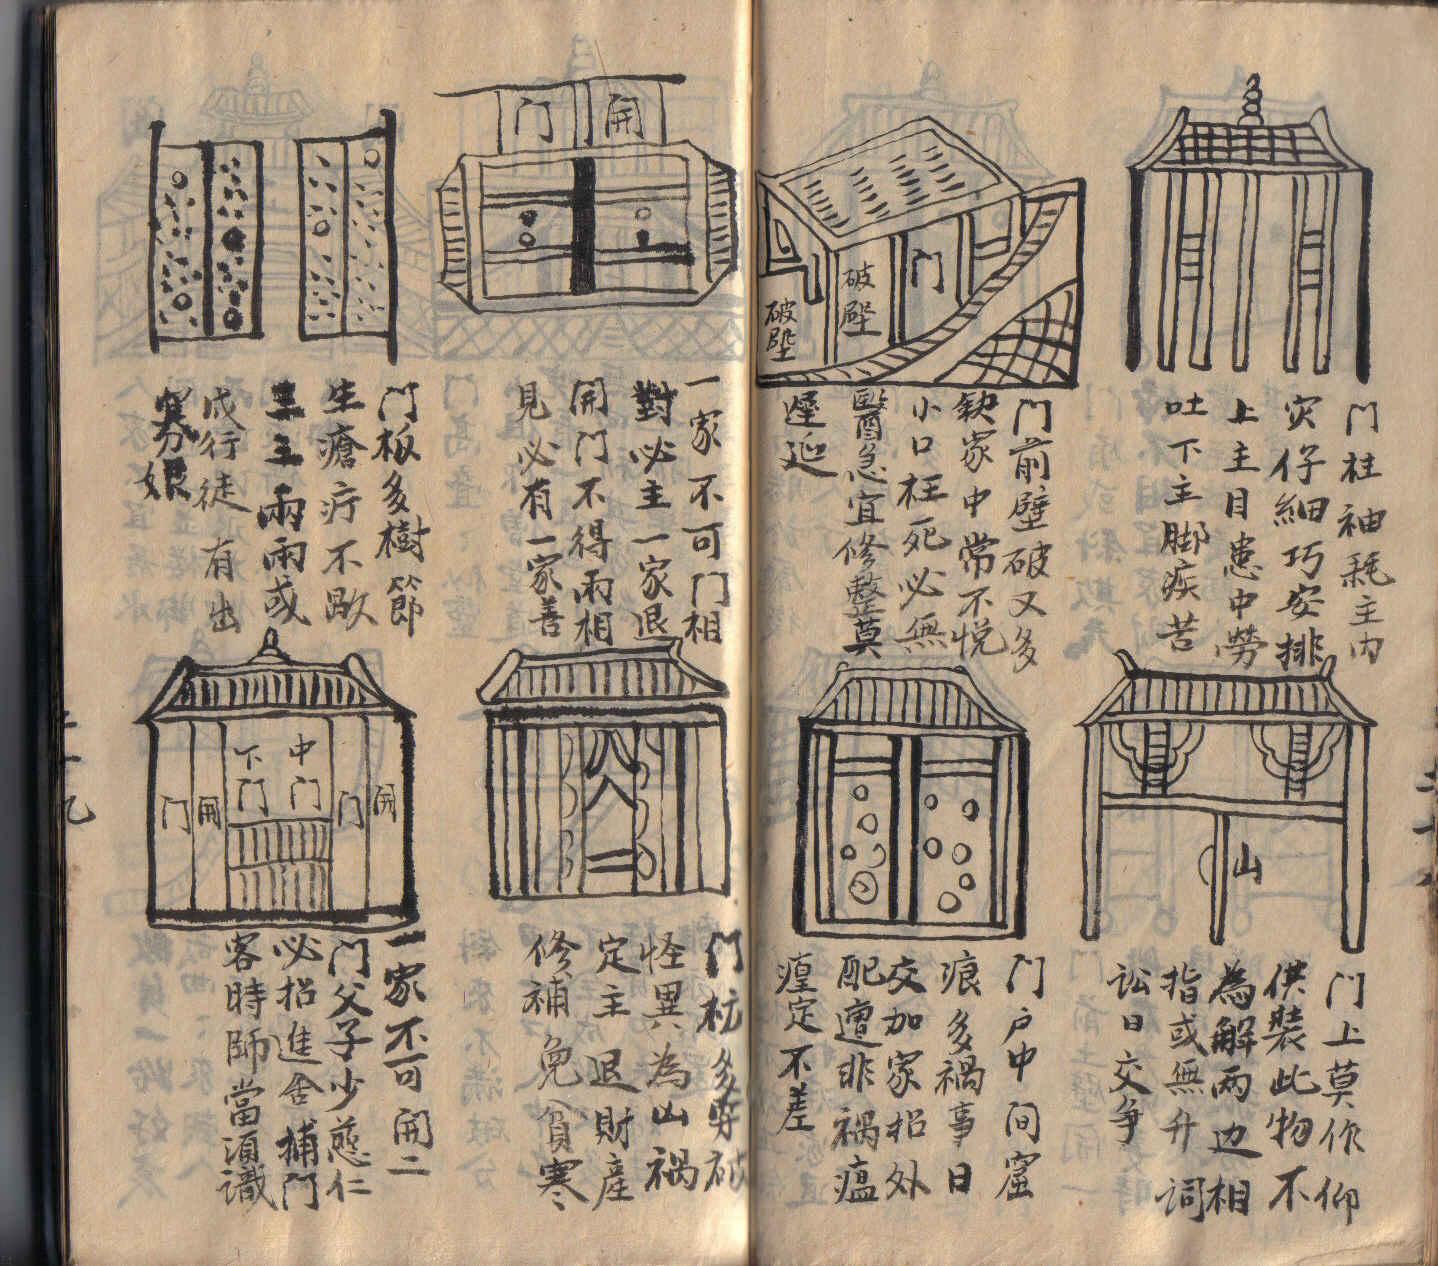 门柱袖耗主内
灾仔細巧安排
上主目患中勞
吐下主脚疾苦
门
破壁
破壁
门前壁破又多
缺家中常不悦
小口枉死必無
醫急宜修整莫
遲延
山
门上莫作仰
供裝此物不
為解兩边相
指或無升詞
訟日交爭
门户中间窟
痕多禍事日
交加家招外
配遭非禍瘟
瘟定不差
二十八
開
门
一家不可门相
對必主一家退
開门不得兩相
見必有一家善
门板多樹節
生瘡疔不歇
三三兩兩或
成行徒有出
寡娘
门杭多破
怪異為山禍
定主退財產
修補免貧寒
開
门
中门
下门
開
门
一家不可開二
门父子少慈仁
必招進舍捕门
客時師當湏識
二十九